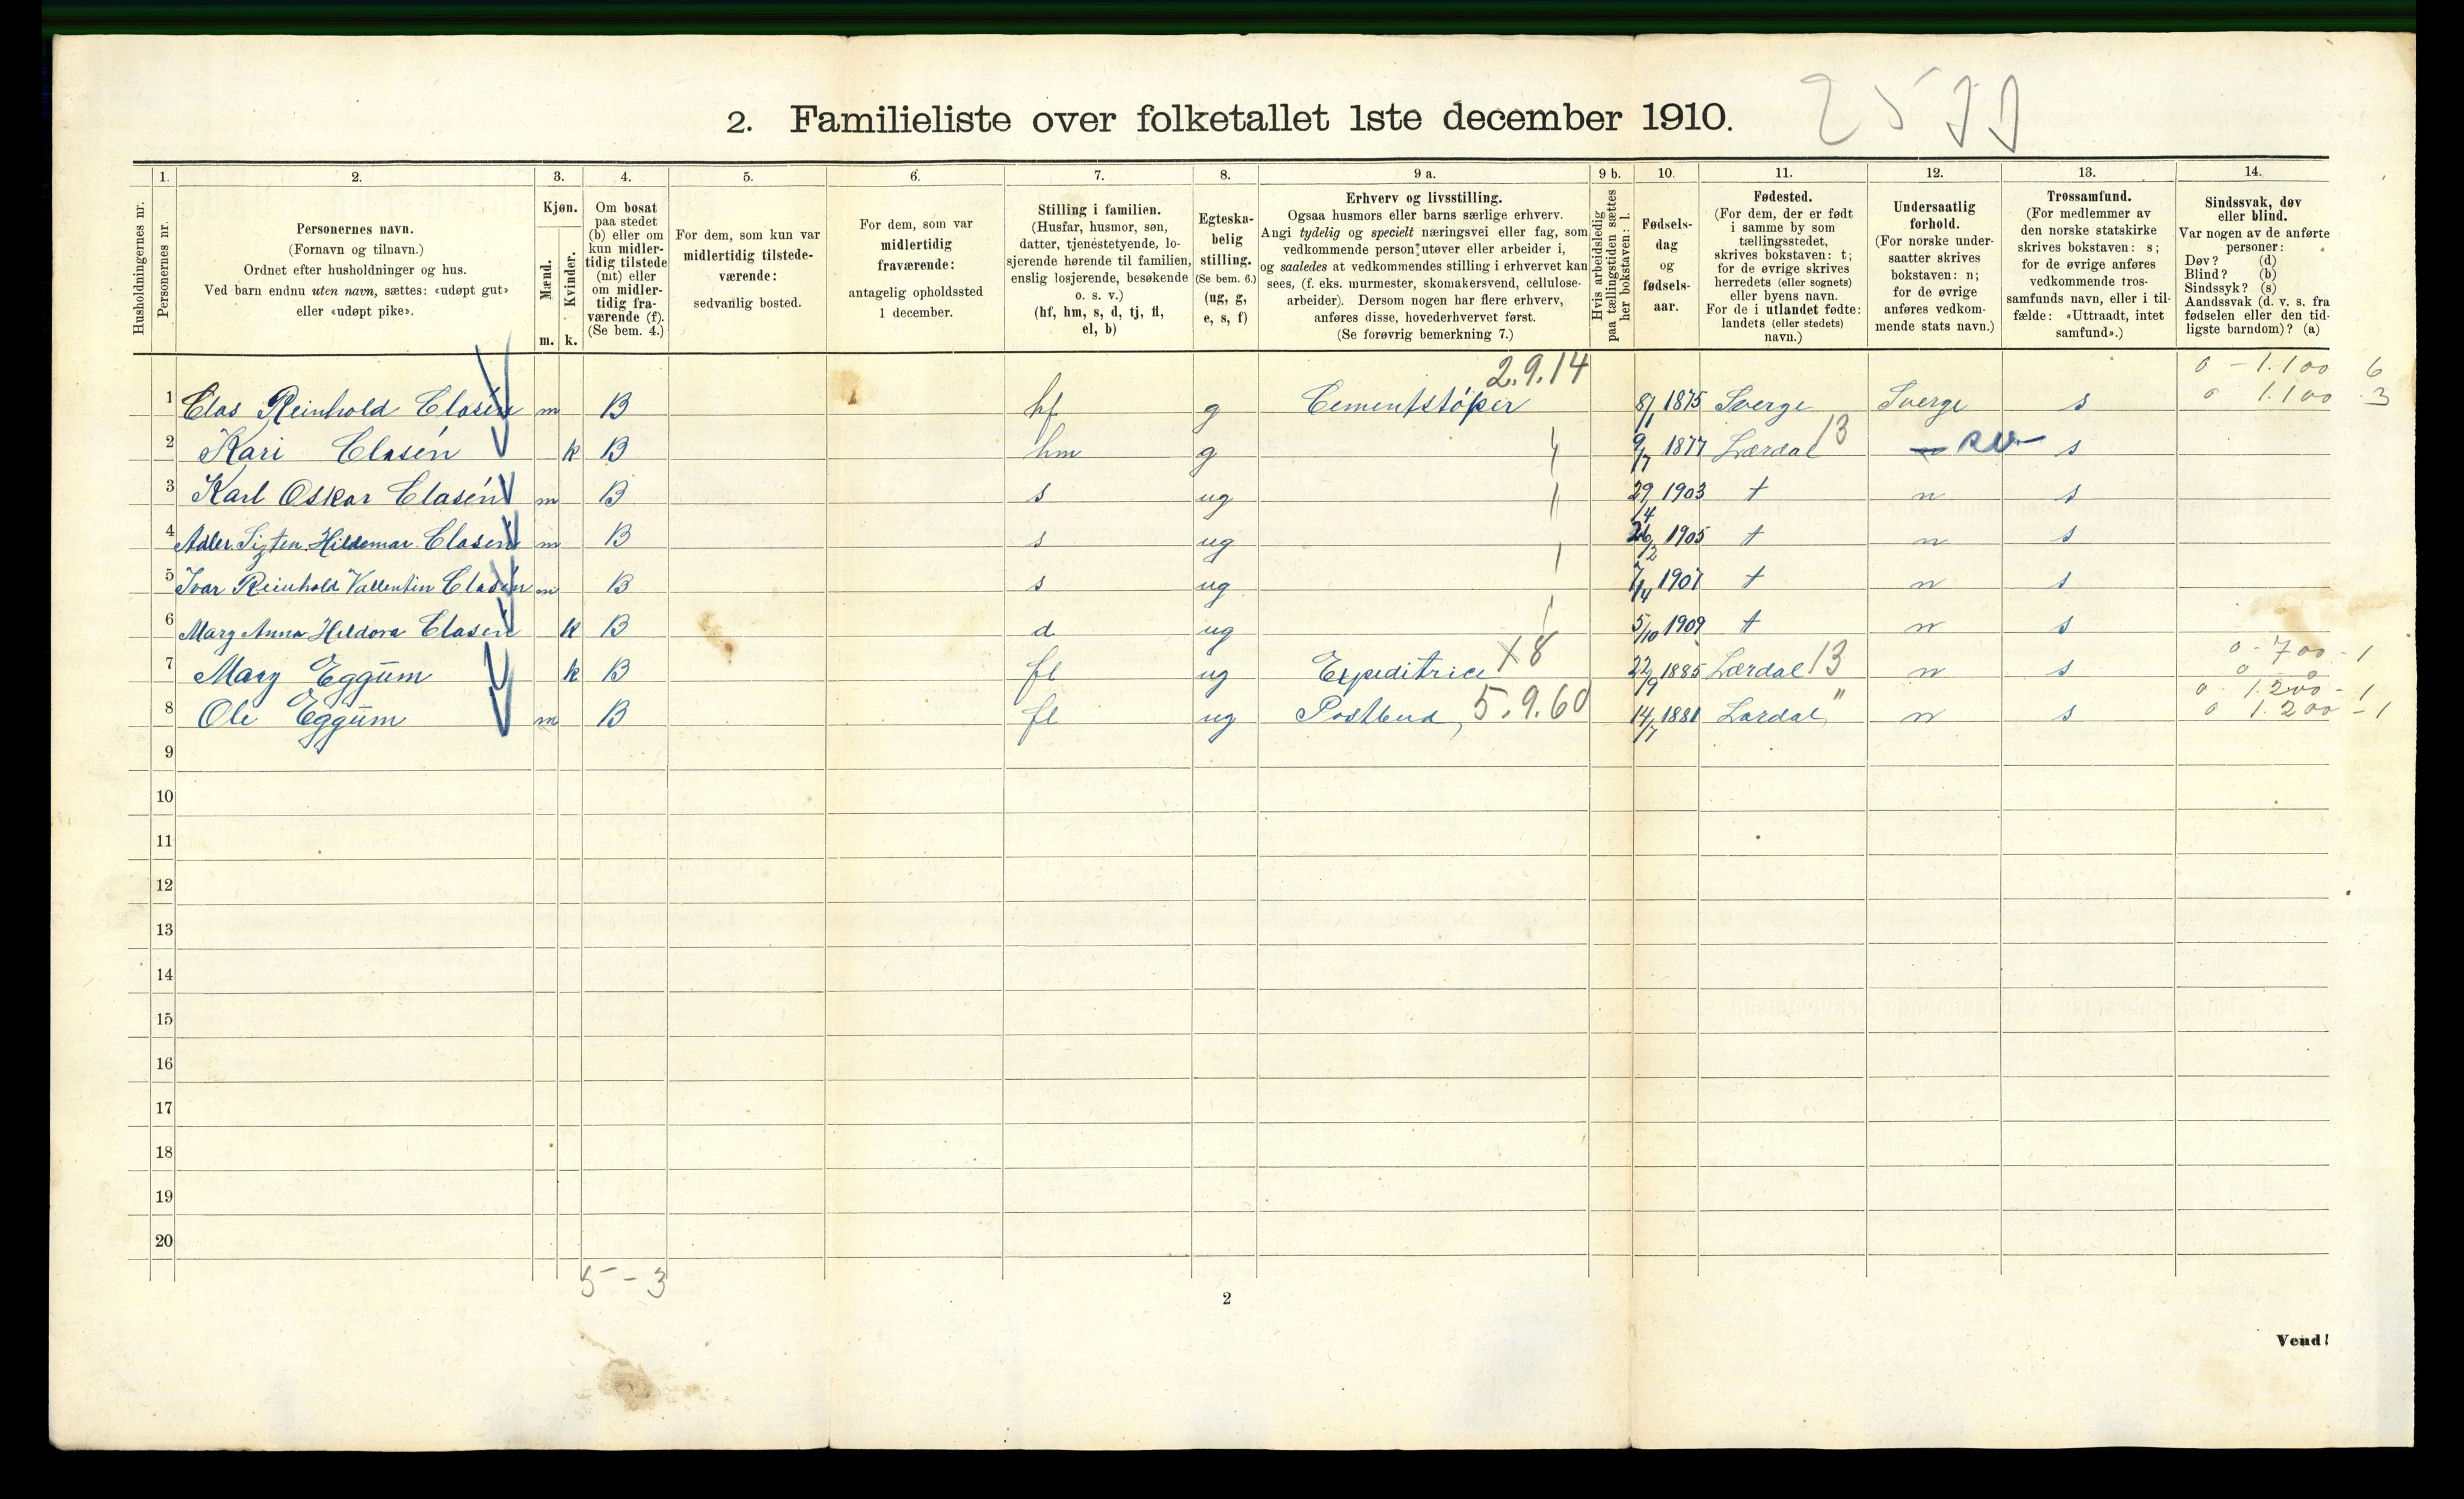 2. Familieliste over folketallet 1ste december 1910.
1. 2. 3. 4. 5. 6. 7. 8. 9 a. 9 b. 10. 11. 12. 13. 14.
Husholdningernes nr.
Personernes nr.
Personernes navn.
(Fornavn og tilnavn.)
Ordnet efter husholdninger og hus.
Ved barn endnu uten navn, sættes: «udøpt gut»
eller «udøpt pike».
Kjøn.
Mænd.
Kvinder.
m. k.
Om bosat
paa stedet
(b) eller om
kun midler-
tidig tilstede
(mt) eller
om midler-
tidig fra-
værende (f).
(Se bem. 4.)
For dem, som kun var
midlertidig tilstede-
værende:
sedvanlig bosted.
For dem, som var
midlertidig
fraværende:
antagelig opholdssted
1 december.
Stilling i familien.
(Husfar, husmor, søn,
datter, tjenestetyende, lo-
sjerende hørende til familien,
enslig losjerende, besøkende
o. s. v.)
(hf, hm, s, d, tj, fl,
el, b)
Egteska-
belig
stilling.
(Se bem. 6.)
(ug, g,
e, s, f)
Erhverv og livsstilling.
Ogsaa husmors eller barns særlige erhverv.
Angi tydelig og specielt næringsvei eller fag, som
vedkommende person utøver eller arbeider i,
og saaledes at vedkommendes stilling i erhvervet kan
sees, (f. eks. murmester, skomakersvend, cellulose-
arbeider). Dersom nogen har flere erhverv,
anføres disse, hovederhvervet først.
(Se forøvrig bemerkning 7.)
Hvis arbeidsledig
paa tællingstiden sættes
her bokstaven: l.
Fødsels-
dag
og
fødsels-
aar.
Fødested.
(For dem, der er født
i samme by som
tællingsstedet,
skrives bokstaven: t;
for de øvrige skrives
herredets (eller sognets)
eller byens navn.
For de i utlandet fødte:
landets (eller stedets)
navn.)
Undersaatlig
forhold.
(For norske under-
saatter skrives
bokstaven: n;
for de øvrige
anføres vedkom-
mende stats navn.)
Trossamfund.
(For medlemmer av
den norske statskirke
skrives bokstaven: s;
for de øvrige anføres
vedkommende tros-
samfunds navn, eller i til-
fælde: «Uttraadt, intet
samfund».)
Sindssvak, døv
eller blind.
Var nogen av de anførte
personer:
Døv? (d)
Blind? (b)
Sindssyk? (s)
Aandssvak (d. v. s. fra
fødselen eller den tid-
ligste barndom)? (a)
2.9.14 0 - 1.100 6
1 Clas Reinhold Clasén m B hf g Cementstøper 8/1 1875 Sverge Sverge s 0 1.100 3
2 Kari Clasén k B hm g 9/7 1877 Lærdal 13 s
3 Karl Oskar Clasén m B s ug 29/4 1903 t n s
4 Adler Sixten Hildemar Clasén m B s ug 26/2 1905 t n s
5 Ivar Reinhold Vallentin Clasén m B s ug 7/4 1907 t n s
6 Mary Anna Hildora Clasén k B d ug 5/10 1909 t n s
0 - 700 - 1
7 Mary Eggum k B fl ug Expeditrice X8 22/9 1885 Lærdal 13 n s 0 0
0 1.200 - 1
8 Ole Eggum m B fl ug Postbud, 5.9.60 14/7 1881 Lærdal " n s 0 1.200 - 1
9
10
11
12
13
14
15
16
17
18
19
20
5 - 3
2
Vend!